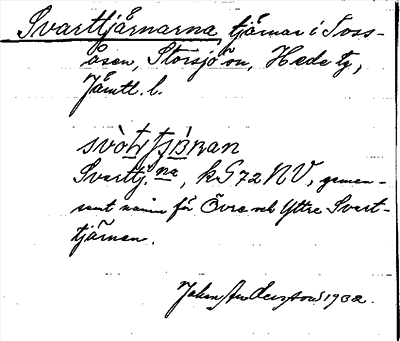 Svarttjärnarna, tjärnar i Foss-
åsen, Storsjö sn, Hede tg,
Jämtl. l.
Svarttj.na, kG72NV, gemen-
samt namn för Övre och Yttre Svart-
tjärnen.
Johan Andersson 1932.